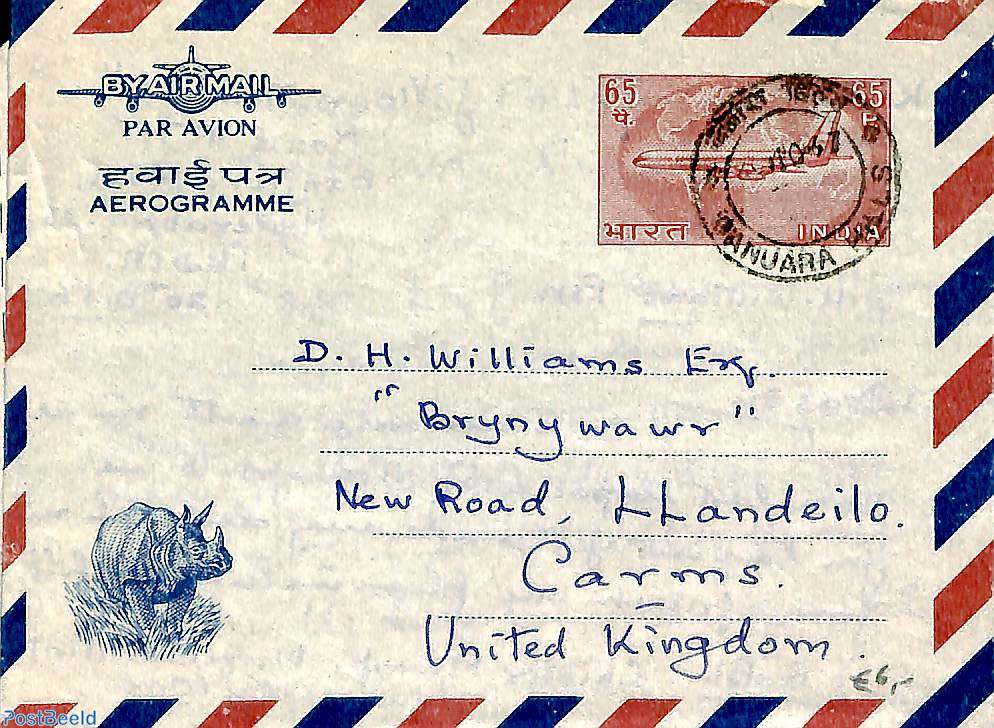 BY AIR MAIL
PAR AVION
हवाई पत्र
AEROGRAMME
65 65
पै. P.
भारत INDIA
D. H. Williams Esq.
"Brynywawr"
New Road, LLandeilo.
Carms.
United Kingdom.
€6,-
PostBeeld